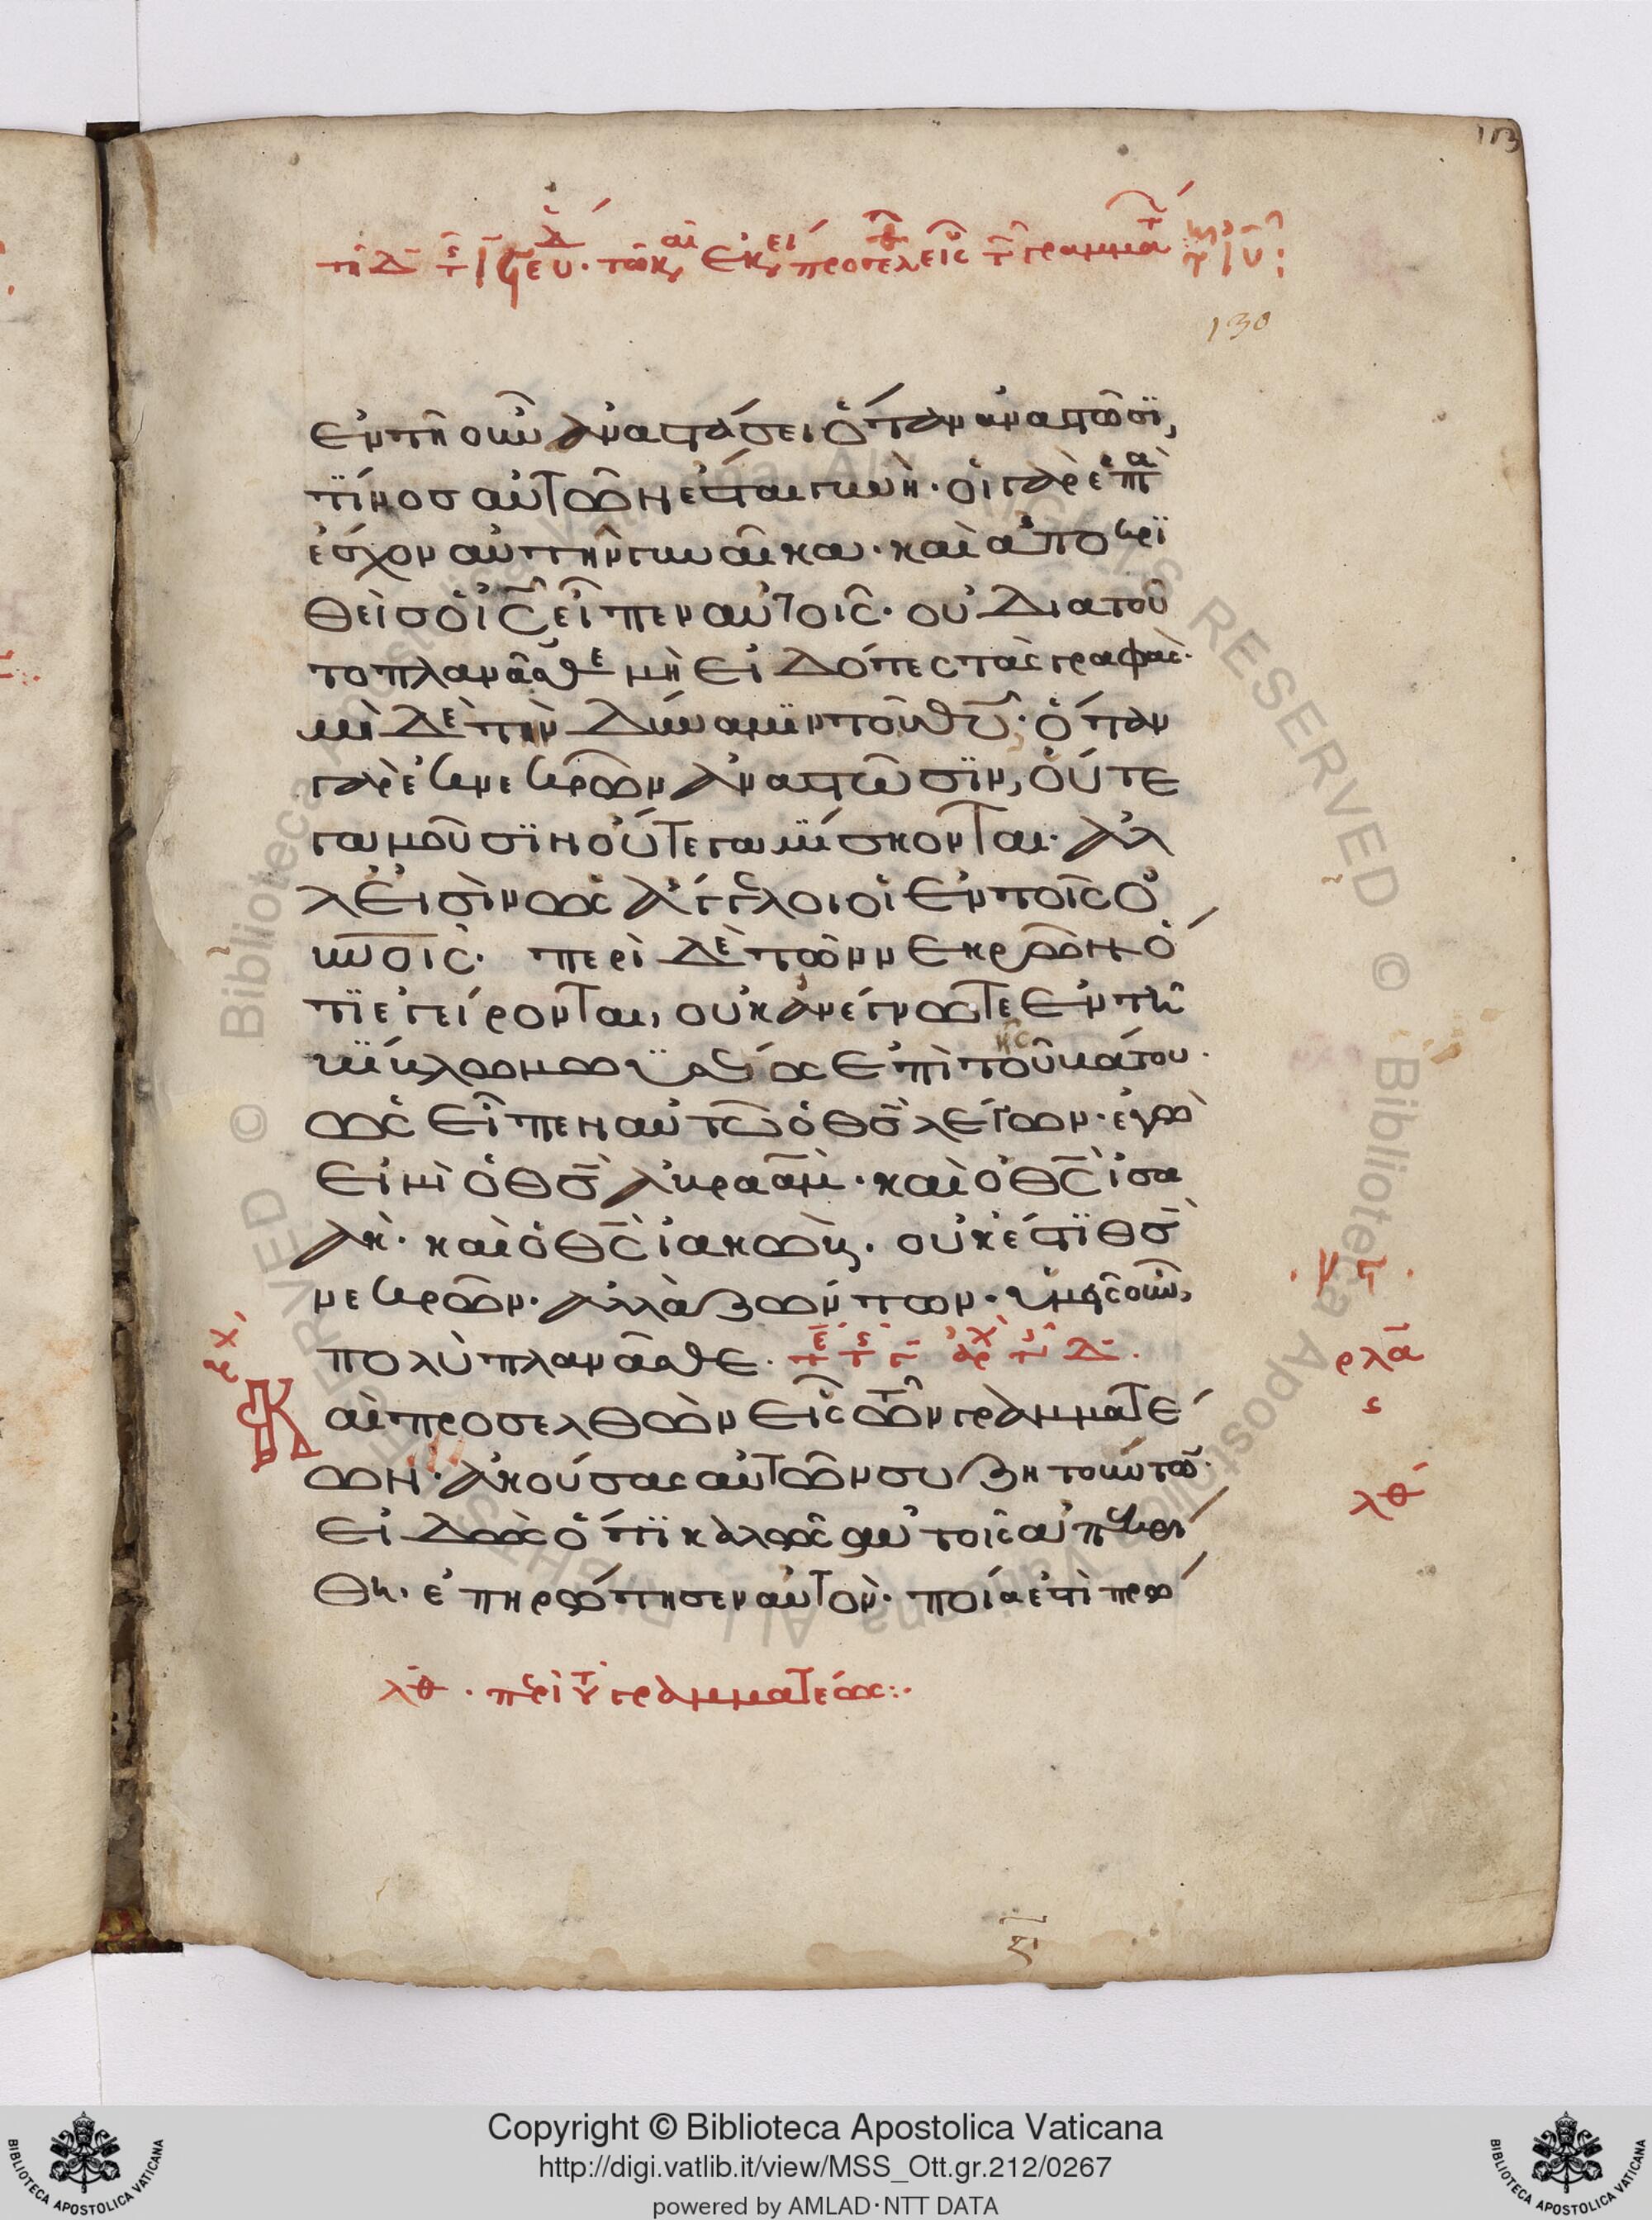 113
130
ἐν τῆ οὖν ἀναστάσει ὅταν ἀναστῶσϊ,
τΐνος αὐτῶν ἔσται γυνή· οἱ γὰρ ἑπτὰ
ἔσχον αὐτὴν γυναῖκα· καὶ ἀποκρϊ
θεὶς ὁ ις εἶπεν αὐτοῖς· οὐ διατοῦ
το πλανᾶσθε μὴ εἰδότες τὰς γραφὰς·
μὴ δὲ τὴν δύναμϊν τοῦ θυ· ὅταν
γὰρ ἐκ νεκρῶν ἀναστῶσϊν, οὔτε
γαμοῦσϊν οὔτε γαμΐσκονται· ἀλ
λ εἰσὶν ὡς ἄγγελοι οἱ ἐν τοῖς ου
νοις· περὶ δὲ τῶν νεκρῶν ὅ
τϊ ἐγείρονται, οὐκ ἀνέγνωτε ἐν τῆ
βΐβλω μωϋσέως ἐπὶ τοῦ βάτου·
ὡς εἶπεν αὐτῶ ὁ θς λέγων· ἐγὼ
εἰμὶ ὁ θς ἀβραὰμ· καὶ ὁ θς ἰσα
ὰκ· καὶ ὁ θς ἰακώβ· οὐκ ἔστϊ θς
νεκρῶν· ἀλλὰ ζώντων· ὑμεῖς οὖν,
πολὺ πλανᾶσθε·
Καὶ προσελθὼν εἷς τῶν γραμματέ
ων· ἀκούσας αὐτῶν συζητούντων·
εἰδὼς ὅτϊ καλῶς αὐτοῖς ἀπεκρί
θη· ἐπηρώτησεν αὐτόν· ποία ἐστὶ πρώ
ρλα
ς
λθ
λθ· περὶ τοῦ γραμματέως:·
Copyright © Biblioteca Apostolica Vaticana
http://digi.vatlib.it/view/MSS_Ott.gr.212/0267
powered by AMLAD·NTT DATA
BIBLIOTECA APOSTOLICA VATICANA
BIBLIOTECA APOSTOLICA VATICANA